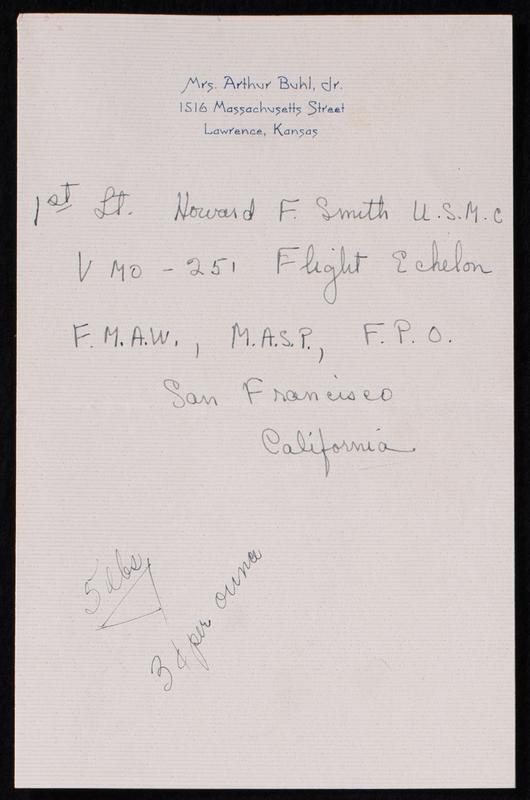 Mrs. Arthur Buhl, Jr.
1516 Massachusetts Street
Lawrence, Kansas
1st Lt. Howard F. Smith U.S.M.C
V MO - 251 Flight Echelon
F.M.A.W., M.A.S.P., F.P.O.
San Francisco
California
5 lbs
3 ¢ per ounce